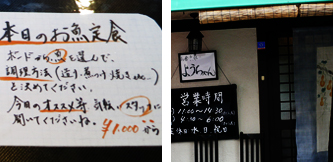 本日のお魚定食
ボードから魚を選んで、
調理方法(造り・煮つけ・焼き etc…)
を決めてください。
今日のオススメ等 気軽にスタッフに
聞いてくださいね。
¥1,000から
ようちゃん
営業時間
11:00~14:30
定休日 水日祝日